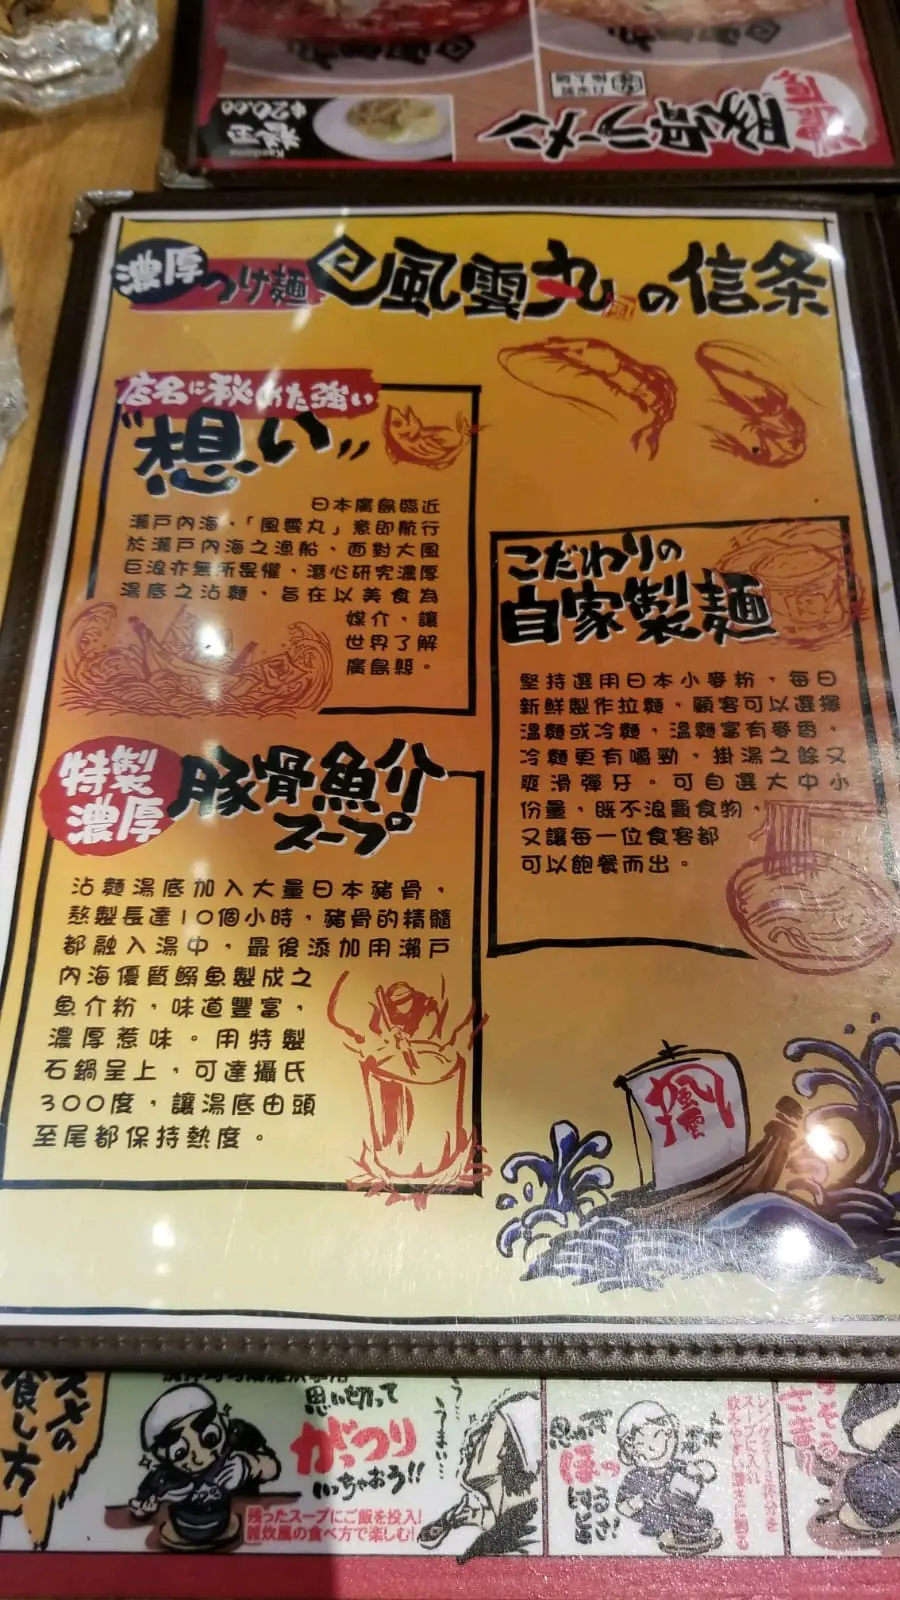 豚骨ラーメン
Kaedama
替玉
$20.00
濃厚つけ麺 風雲丸の信条
店名に秘めた強い
"想い"
日本廣島臨近
瀨戶內海，「風雲丸」意即航行
於瀨戶內海之漁船，面對大風
巨浪亦無所畏懼，潛心研究濃厚
湯底之沾麵，旨在以美食為
媒介，讓
世界了解
廣島縣。
こだわりの
自家製麺
堅持選用日本小麥粉，每日
新鮮製作拉麵，顧客可以選擇
溫麵或冷麵，溫麵富有麥香，
冷麵更有嚼勁，掛湯之餘又
爽滑彈牙。可自選大中小
份量，既不浪費食物，
又讓每一位食客都
可以飽餐而出。
特製
濃厚
豚骨魚介
スープ
沾麵湯底加入大量日本豬骨，
熬製長達10個小時，豬骨的精髓
都融入湯中，最後添加用瀨戶
內海優質鰯魚製成之
魚介粉，味道豐富，
濃厚惹味。用特製
石鍋呈上，可達攝氏
300度，讓湯底由頭
至尾都保持熱度。
風雲
思い切って
がっつり
いちゃおう!!
残ったスープにご飯を投入!
雑炊風の食べ方で楽しむ!
うまい…
ほっ